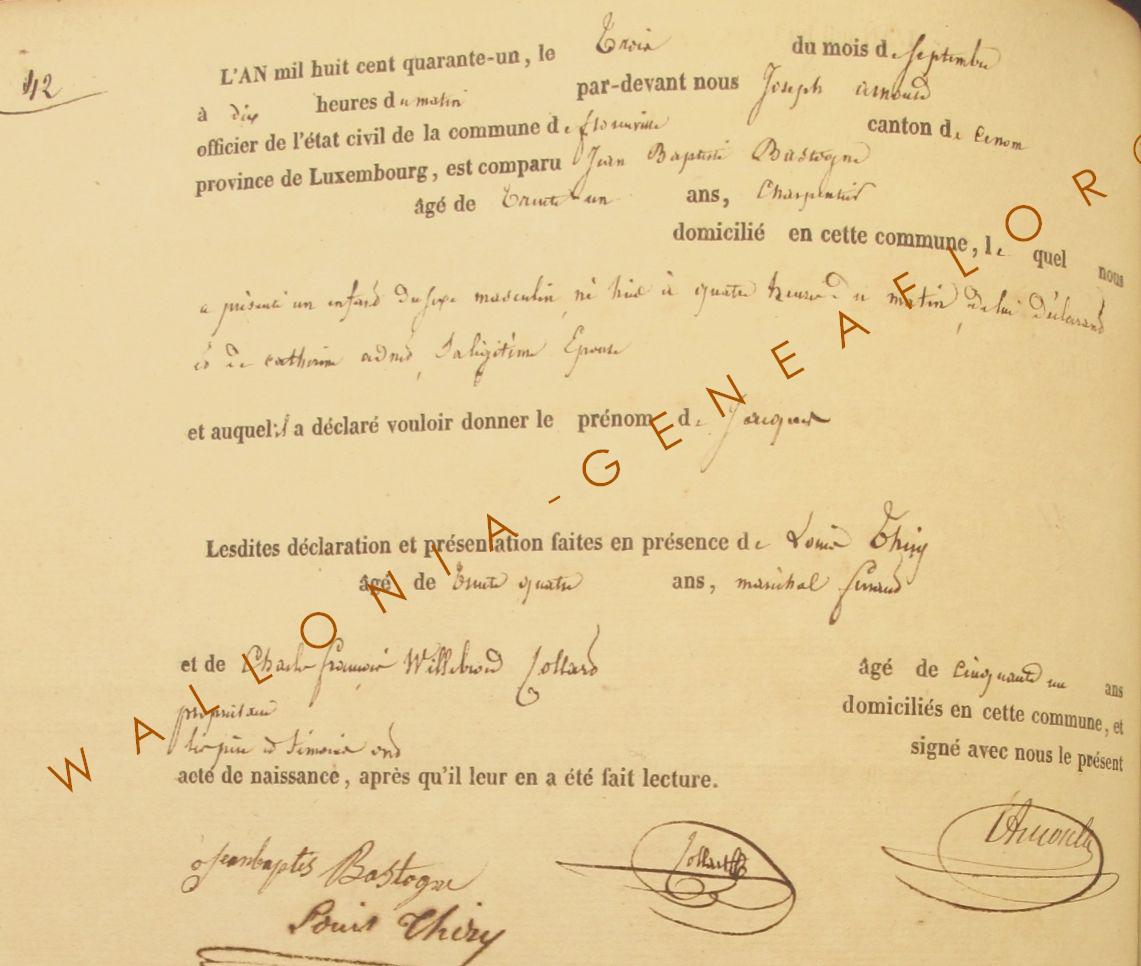 42
L'AN mil huit cent quarante-un, le Trois du mois de Septembre
à dix heures du matin par-devant nous Joseph arnould
officier de l'état civil de la commune de florenville canton de
province de Luxembourg, est comparu Jean Baptiste Bastogne
âgé de Trente un ans, Charpentier
domicilié en cette commune, le quel nous
a présenté un enfand du sexe masculin né hier à quatre heure du matin, de lui déclarand
et de catherine adnet, sa légitime Epouse
et auquel il a déclaré vouloir donner le prénom de Jacques
Lesdites déclaration et présentation faites en présence de Louis Thiry
âgé de trente quatre ans, maréchal ferrand
et de Charle françois Willebrord Collard âgé de Cinquante un ans
propriétaire domiciliés en cette commune, et
les père et témoins ond signé avec nous le présent
acte de naissance, après qu'il leur en a été fait lecture.
Jeanbaptis Bastogne
Collard
Louis Thiry
WALLONIA-GENEAFLOR